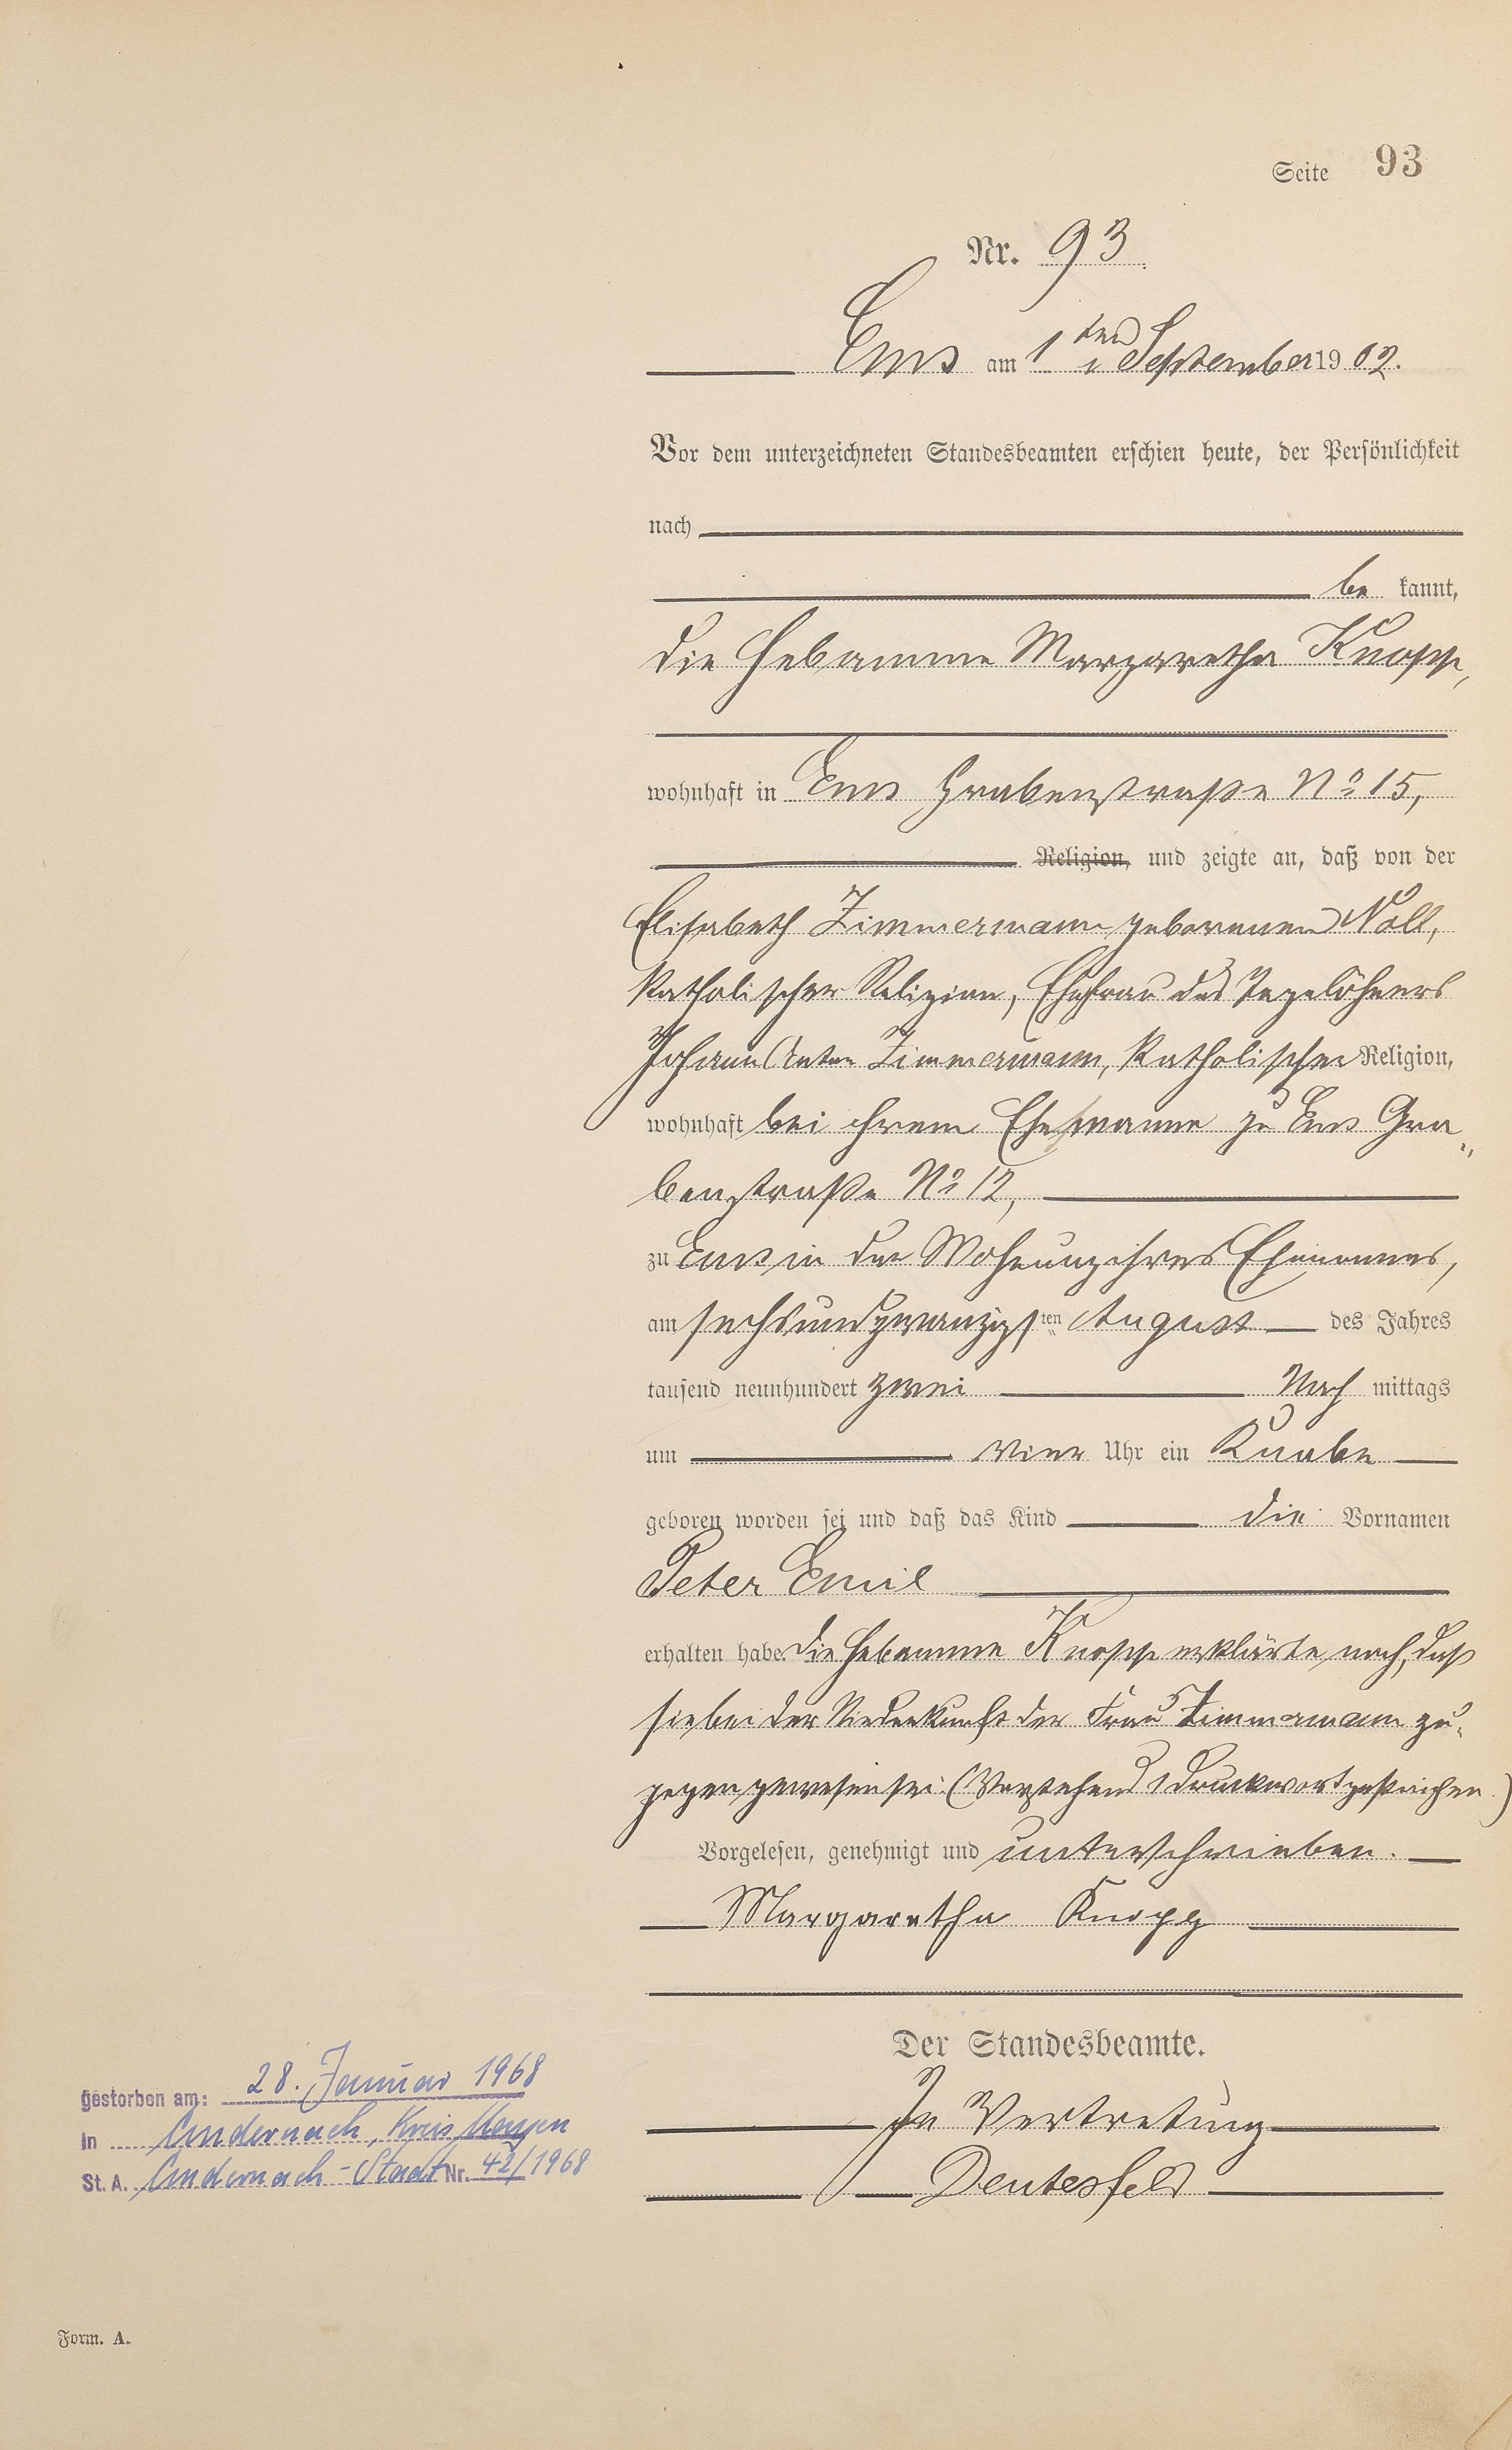 Seite 93
Nr. 93
Ems am 1ten September 1902.
Vor dem unterzeichneten Standesbeamten erschien heute, der Persönlichkeit
nach
be kannt,
die Hebamme Margaretha Knopp,
wohnhaft in Ems Grabenstraße No 15,
Religion, und zeigte an, daß von der
Elisabeth Zimmermann geborenen Noll,
katholischer Religion, Ehefrau des Tagelöhners
Johann Anton Zimmermann, katholischer Religion,
wohnhaft bei ihrem Ehemanne zu Ems Gra„
benstraße No 12,
zu Ems in der Wohnung ihres Ehemannes,
am sechsundzwanzigsten August des Jahres
tausend neunhundert zwei Nach mittags
um vier Uhr ein Knabe
geboren worden sei und daß das Kind die Vornamen
Peter Emil
erhalten habe. Die Hebamme Knopp erklärte noch, daß
sie bei der Niederkunft der Frau Zimmermann zu-
gegen gewesen sei. (Vorstehend 1 Druckwort gestrichen.)
Vorgelesen, genehmigt und unterschrieben.
Margaretha Knopp
Der Standesbeamte.
In Vertretung
Deutesfeld
gestorben am: 28. Januar 1968
in Andernach, Kreis Mayen
St. A. Andernach-Stadt Nr. 42/1968
Form. A.